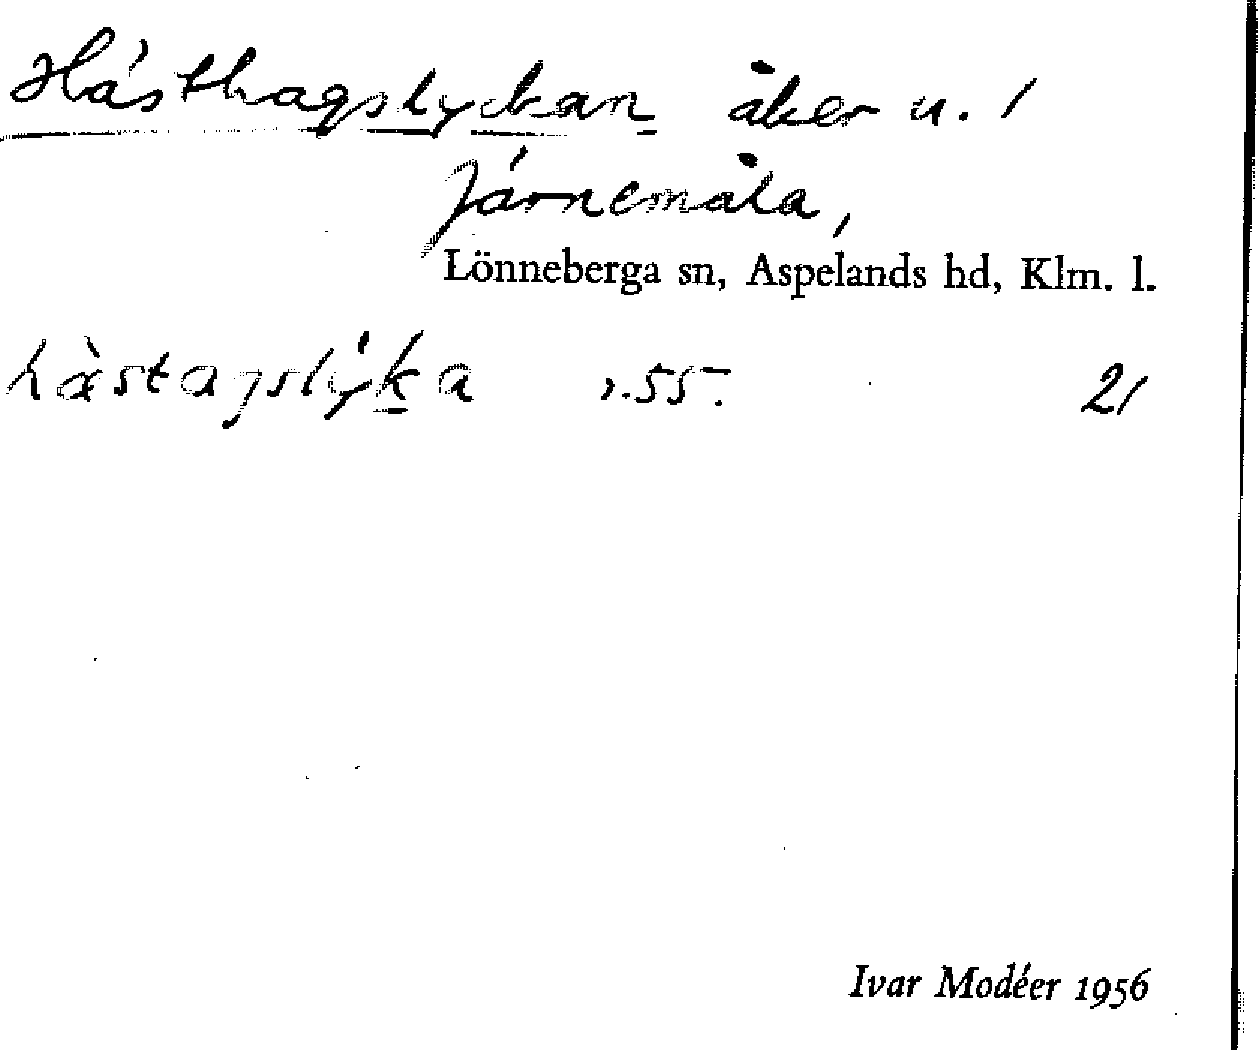 Hästhagslyckan åker u. 1
Järnemåla,
Lönneberga sn, Aspelands hd, Klm. l.
hæ̀stagslýka s. 55. 21
Ivar Modéer 1956